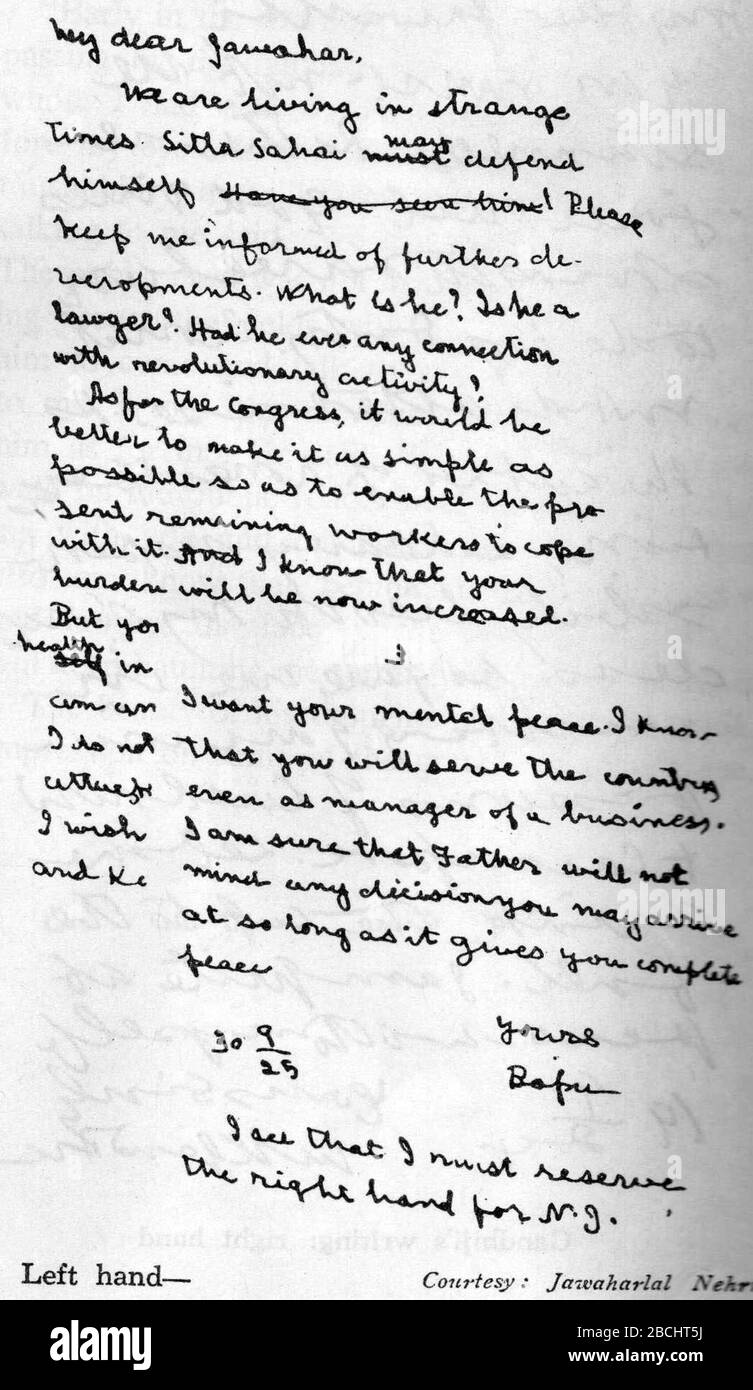 My dear Jawahar,
We are living in strange
times. Sitla Sahai may
must defend
himself Have you seen him? Please
keep me informed of further de-
velopments. What is he? Is he a
lawyer? Had he ever any connection
with revolutionary activity?
As for the Congress, it would be
better to make it as simple as
possible so as to enable the pre
sent remaining workers to cope
with it. And I know that your
burden will be now increased.
But yo
health
self in
I want your mental peace. I know
I do not that you will serve the country
even as manager of a business.
I wish I am sure that Father will not
and mind any decision you may arrive
at so long as it gives you complete
peace
30 9/25
Yours
Bapu
I see that I must reserve
the right hand for N.J.
Gandhiji's writing: right hand
Left hand—
Courtesy: Jawaharlal Nehr
alamy
alamy
Image ID: 2BCHT5J
www.alamy.com